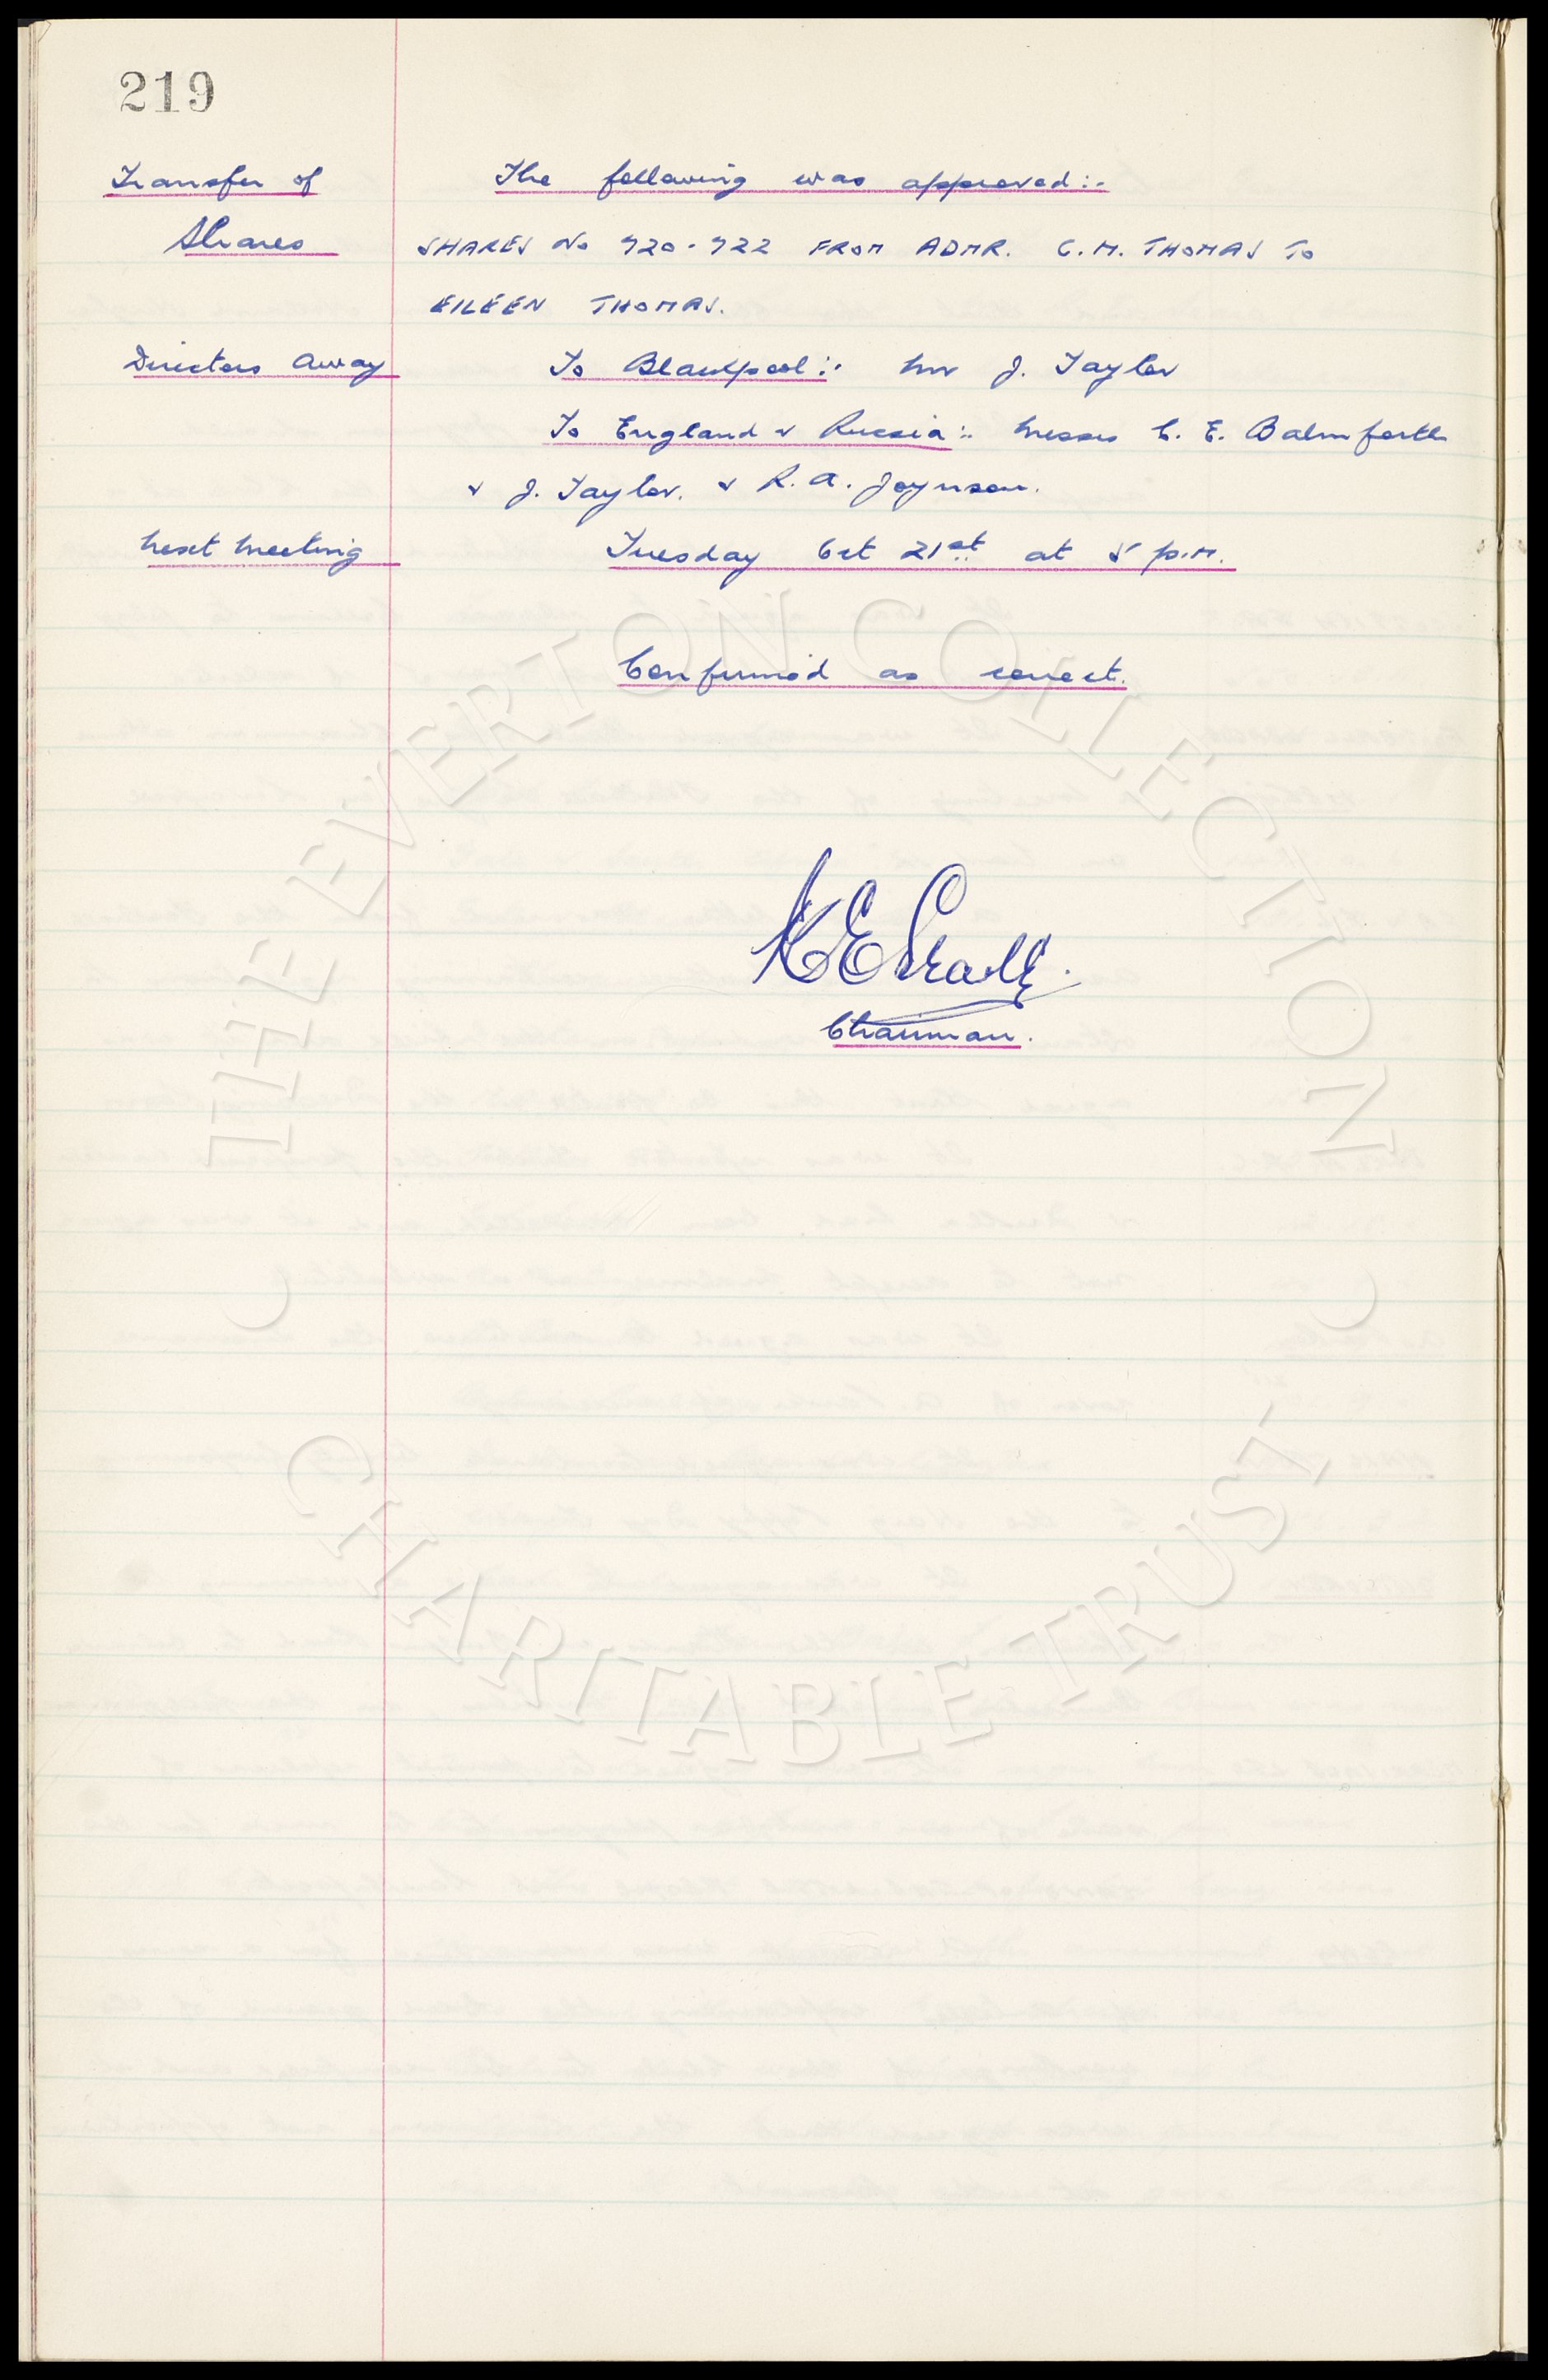 219
Transfer of
Shares
The following was approved:-
SHARES No 720-722 FROM ADMR. C.M. THOMAS TO
EILEEN THOMAS.
Directors Away
To Blackpool:- Mr J. Taylor
To England & Russia:- Messrs C. E. Balmforth
& J. Taylor. & R.A. Joynson.
Next Meeting
Tuesday Oct 21st at 5 p.m.
Confirmed as correct.
Chairman.
THE EVERTON COLLECTION
CHARITABLE TRUST